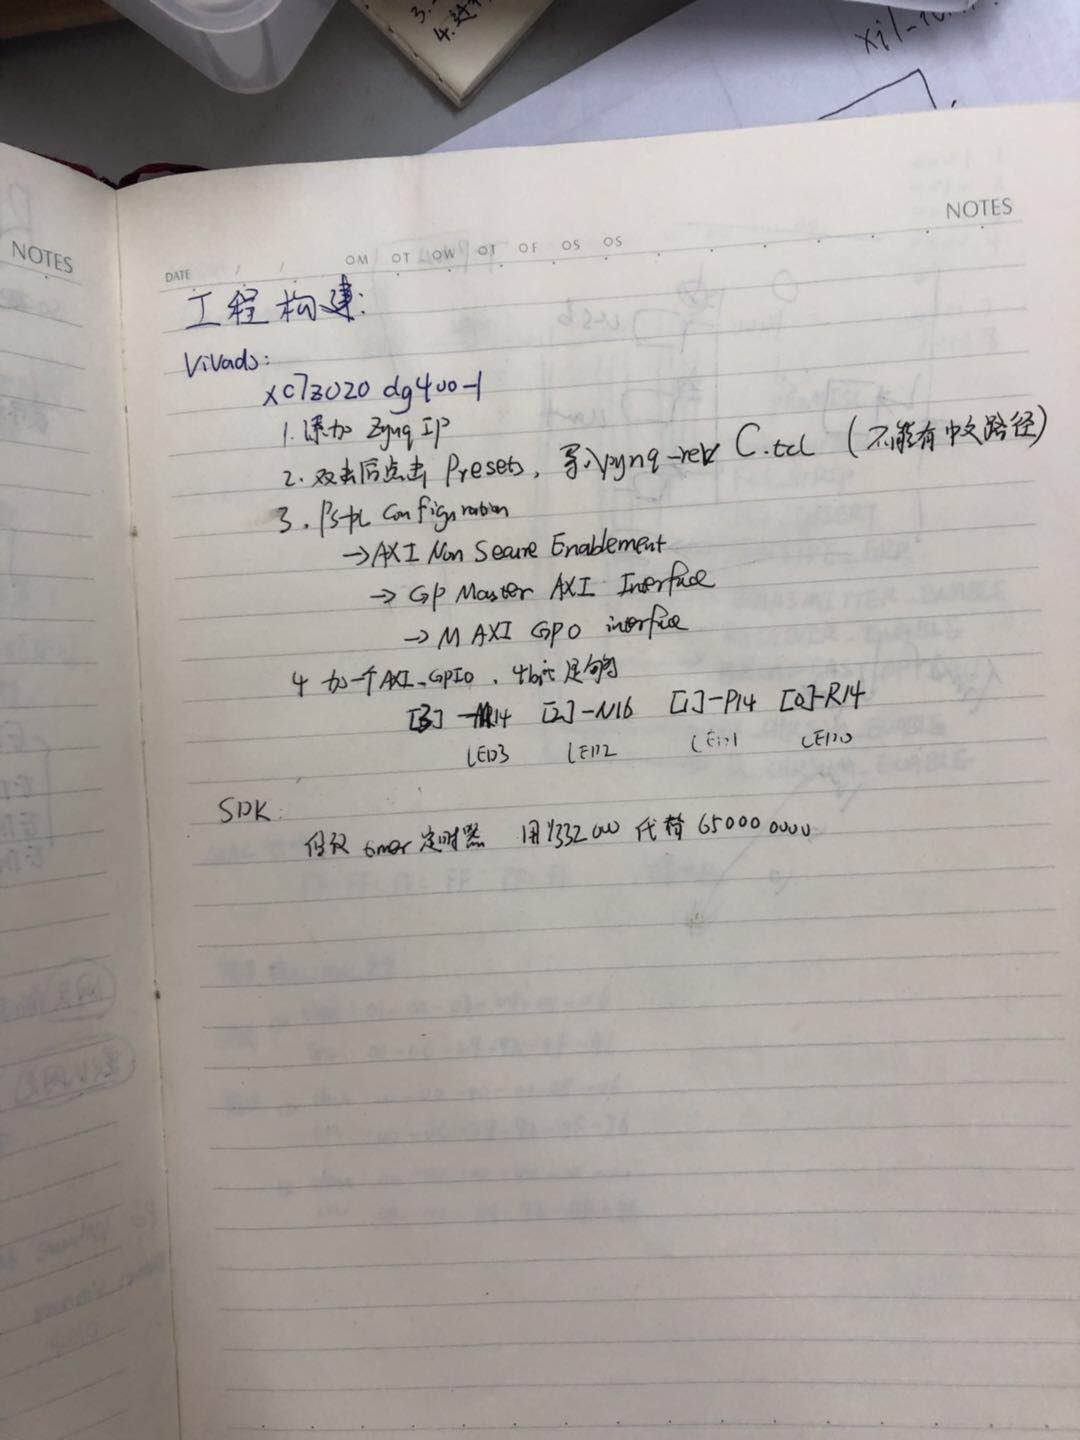 3.
4.
NOTES
NOTES
DATE / / OM OT OW OT OF OS OS
工程构建:
Vivado:
xc7z020 dg400-1
1.添加 Zynq IP
2.双击后点击 Presets, 导入pynq-revC.tcl (不能有中文路径)
3.PS-PL Configuration
→AXI Non Secure Enablement
→GP Master AXI Interface
→M AXI GP0 interface
4 加一个AXI_GPIO, 4bit足够
[3]-M14 [2]-N16 [1]-P14 [0]-R14
LED3 LED2 LED1 LED0
SDK:
timer定时器 用 代替